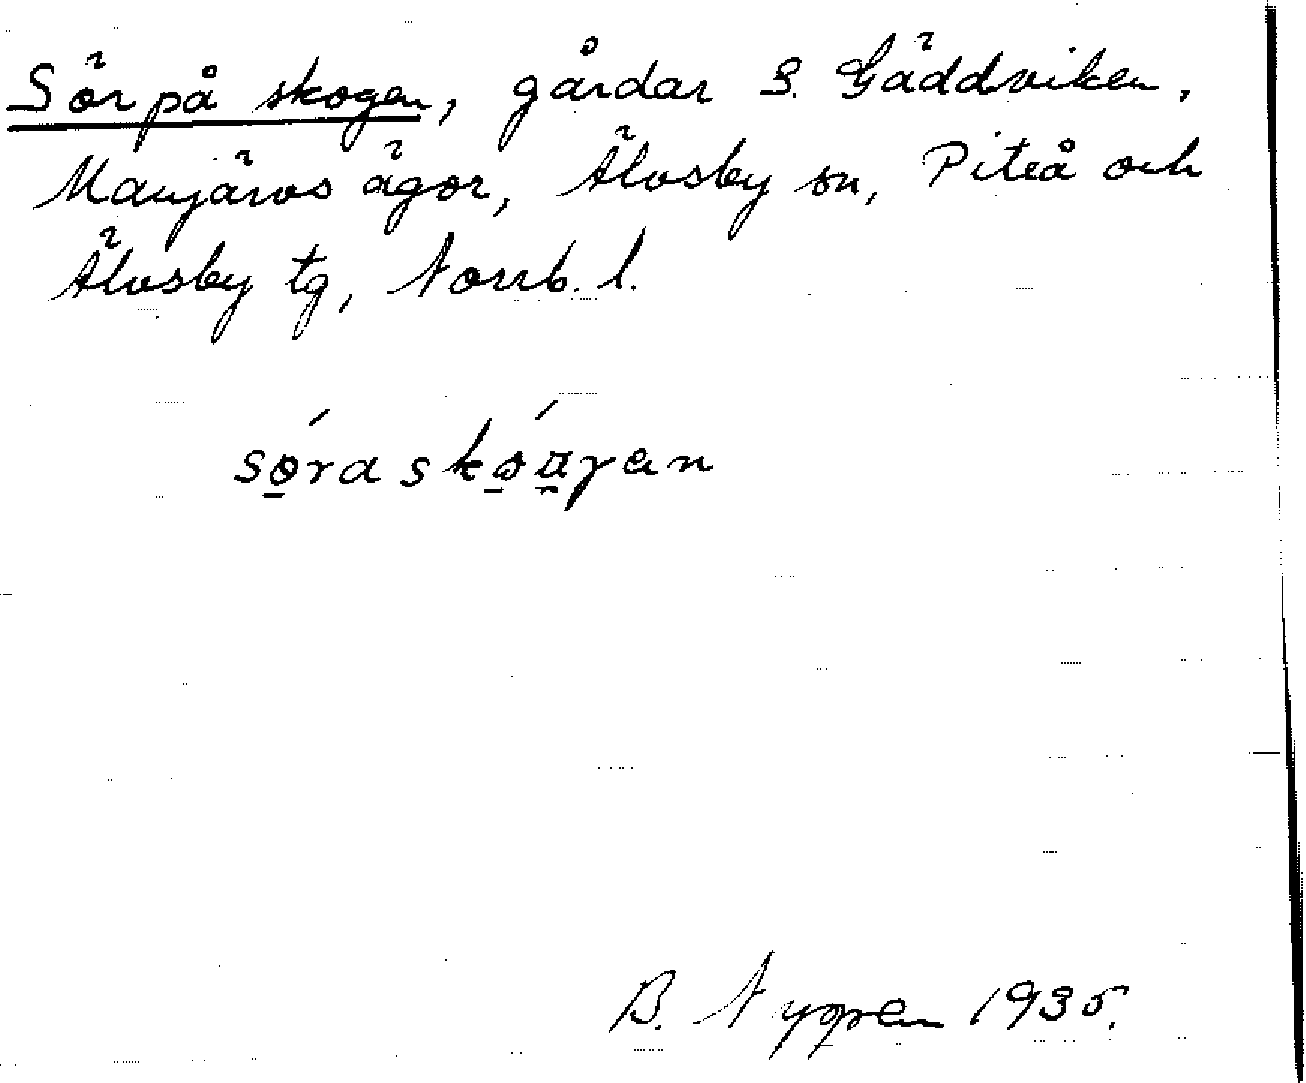 Sör på skogen, gårdar S. Gäddviken,
Manjärvs ägor, Älvsby sn, Piteå och
Älvsby tg, Norrb. l.
B. Nygren 1935.